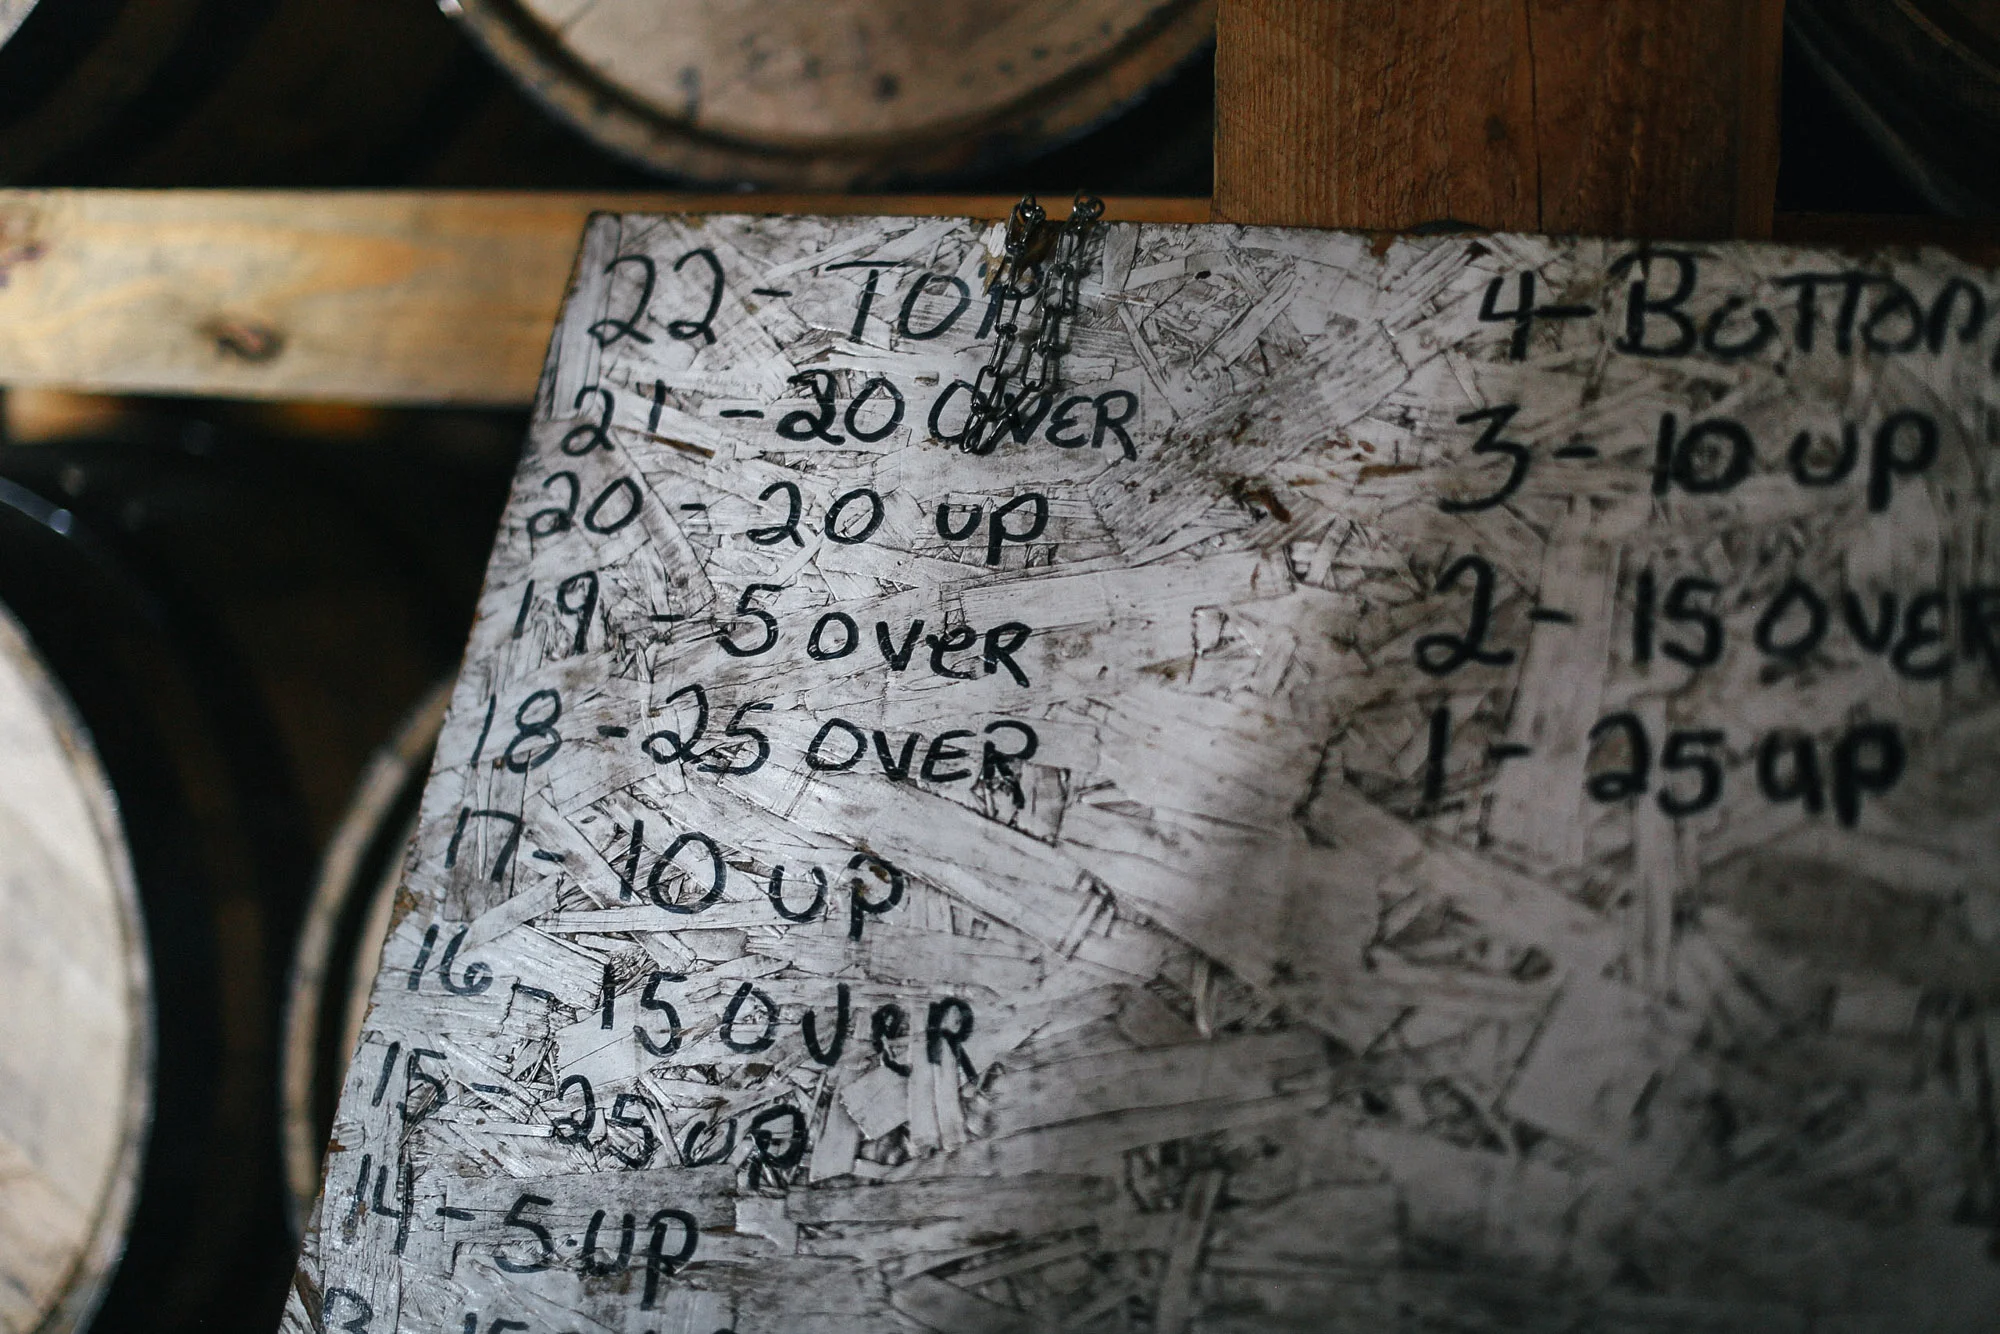 22 - TOP
21 - 20 OVER
20 - 20 up
19 - 5 over
18 - 25 OVER
17 - 10 up
16 - 15 over
15 - 25 up
14 - 5 up
4 - Bottom
3 - 10 up
2 - 15 OVER
1 - 25 up